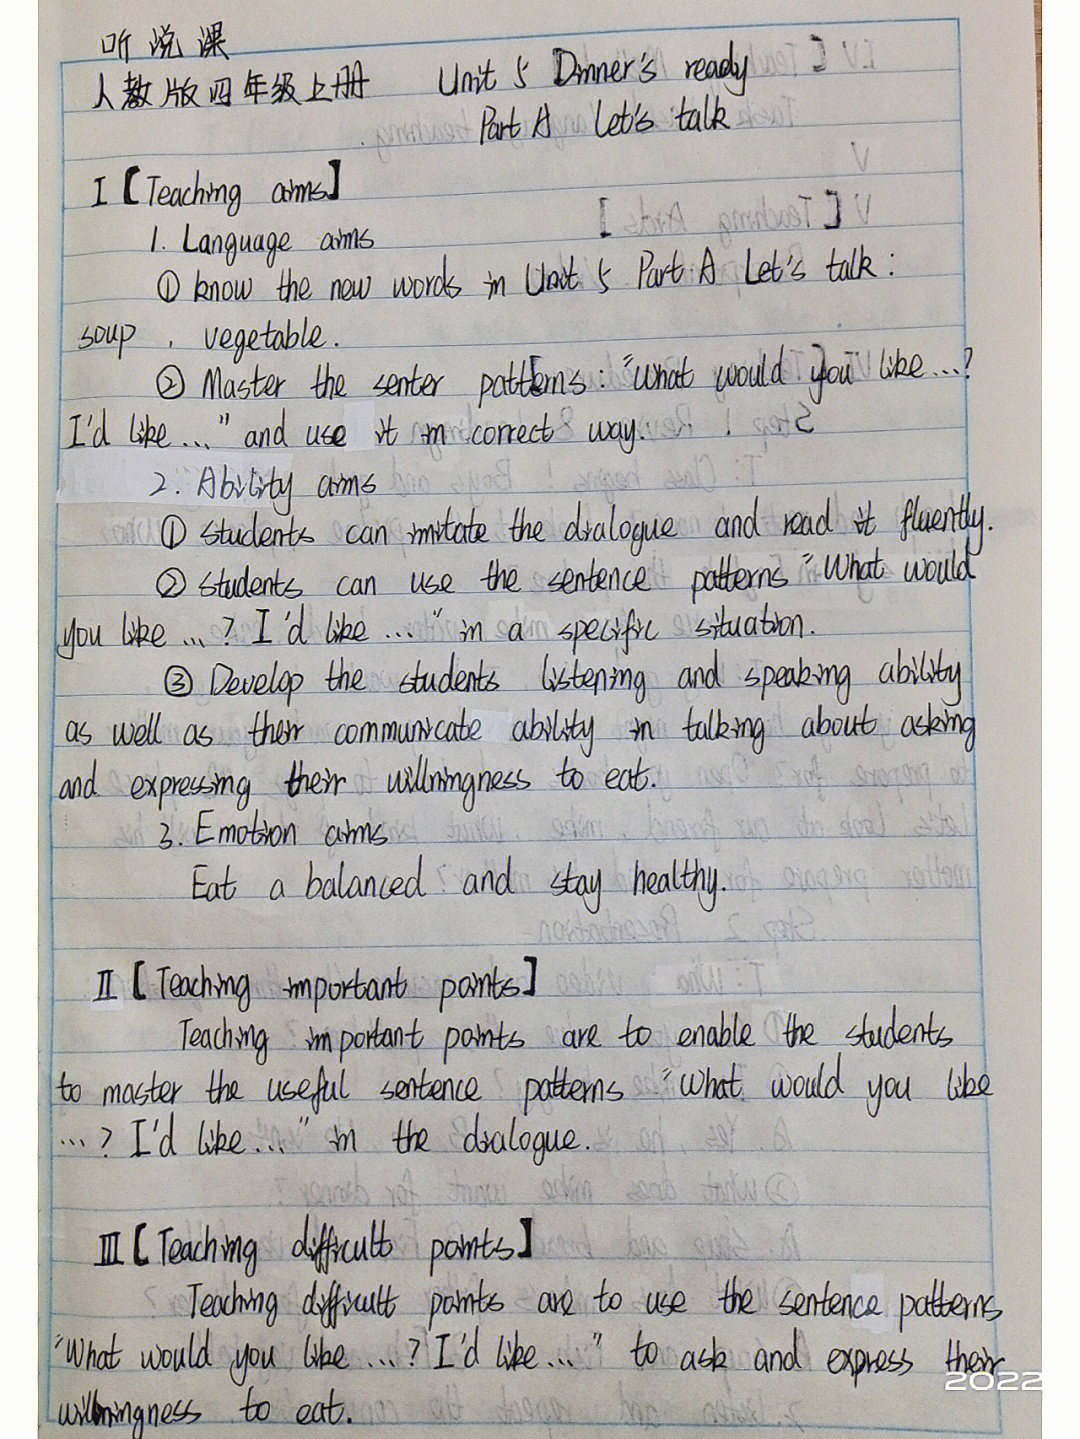 听说课
人教版四年级上册 Unit 5 Dinner's ready
Part A Let's talk
I【Teaching aims】
1. Language aims
① know the new words in Unit 5 Part A Let's talk:
soup, vegetable.
② Master the senter patterns: "What would you like...?
I'd like..." and use it in correct way.
2. Ability aims
① students can imitate the dialogue and read it fluently.
② students can use the sentence patterns "What would
you like...? I'd like..." in a specific situation.
③ Develop the students listening and speaking ability
as well as their communicate ability in talking about asking
and expressing their willningness to eat.
3. Emotion aims
Eat a balanced and stay healthy.
II【Teaching important points】
Teaching important points are to enable the students
to master the useful sentence patterns "What would you like
...? I'd like..." in the dialogue.
III【Teaching difficult points】
Teaching difficult points are to use the sentence patterns
"What would you like...? I'd like..." to ask and express their
willningness to eat.
2022